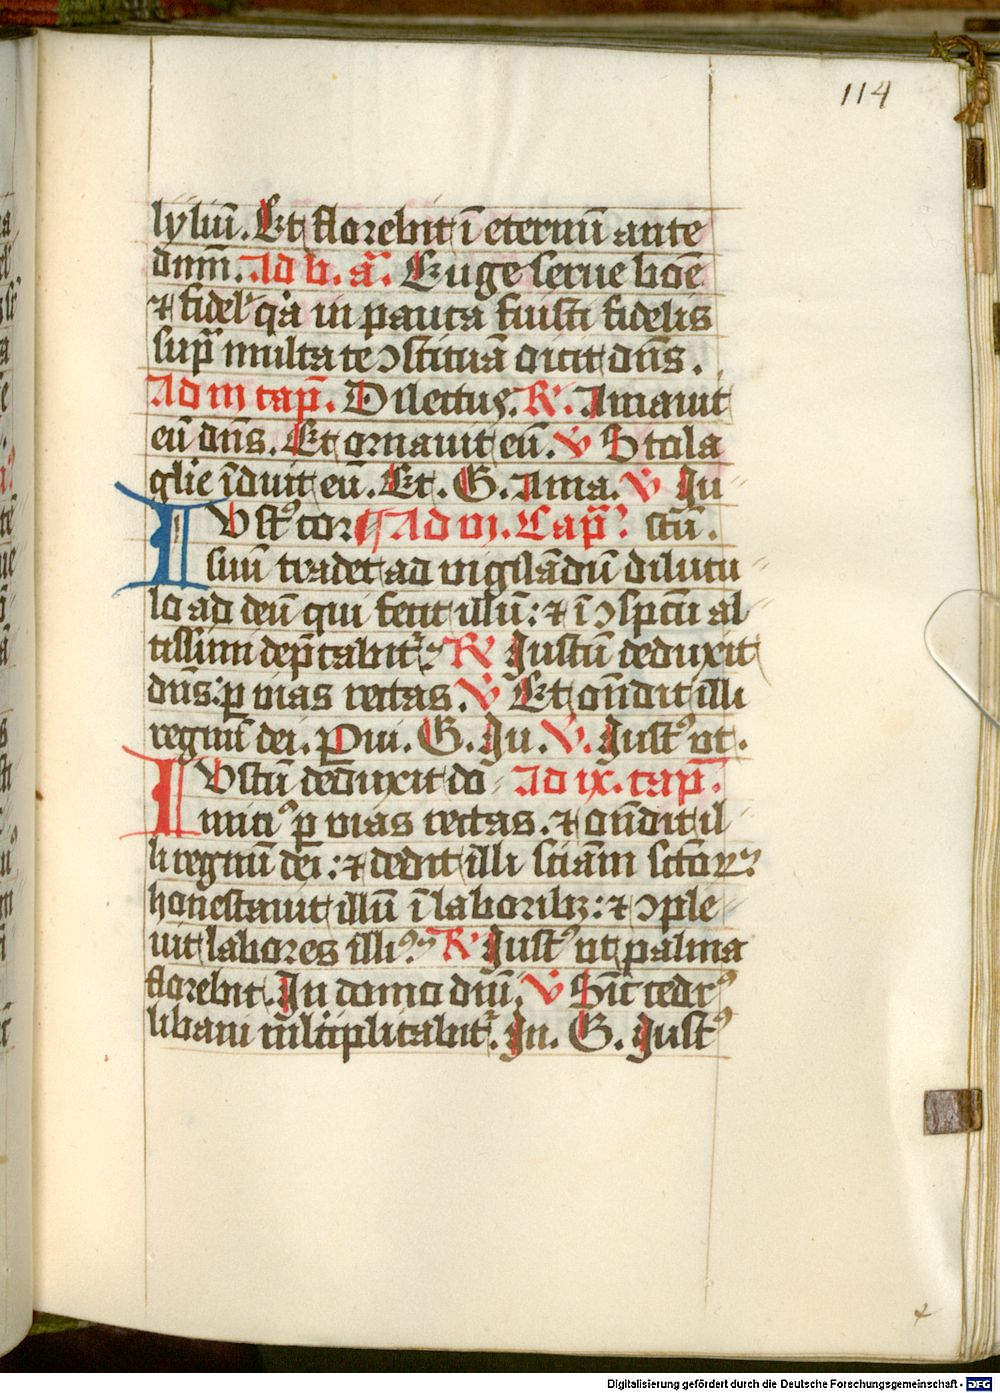 114
lyliū. Et florebit ī eternū ante
dnm̄. Ad b. aᷓ. Euge serue boē
⁊ fidel' q̇a in pauca fuisti fidelis
supᷓ multa te ↄstituā dicit dn̄s.
Ad m cap̄. Dilectus. R'. Amauit
eū dn̄s. Et ornauit eū. V Stola
glīe īduit eū. Et. G. Ama. V Ju
IVstꝰ cor ¶ Ad iij. Capᷓ. stū.
suū tradet ad vigilādū dilucu
lo ad deū qui fecit illū: ⁊ ī ↄspcū al
tissimi dep̄cabit᷑. R' Justū deduxit
dn̄s: ꝑ vias rectas. V Et on̄dit illi
regnū dei. Pui. G. Ju. V. Justꝰ ut.
IVstū deduxit do Ad ix. cap̄.
miciꝰ ꝑ vias rectas. ⁊ on̄dit il
li regnū dei: ⁊ dedit illi sciām sctoꝝ:
honestauit illū ī laboribꝫ: ⁊ ↄple
uit labores illiꝰ. R' Justꝰ ut palma
florebit. In domo dn̄i. V Sic̄ cedrꝰ
libani ml̄tiplicabit᷑. In. G. Justꝰ
Digitalisierung gefördert durch die Deutsche Forschungsgemeinschaft - DFG